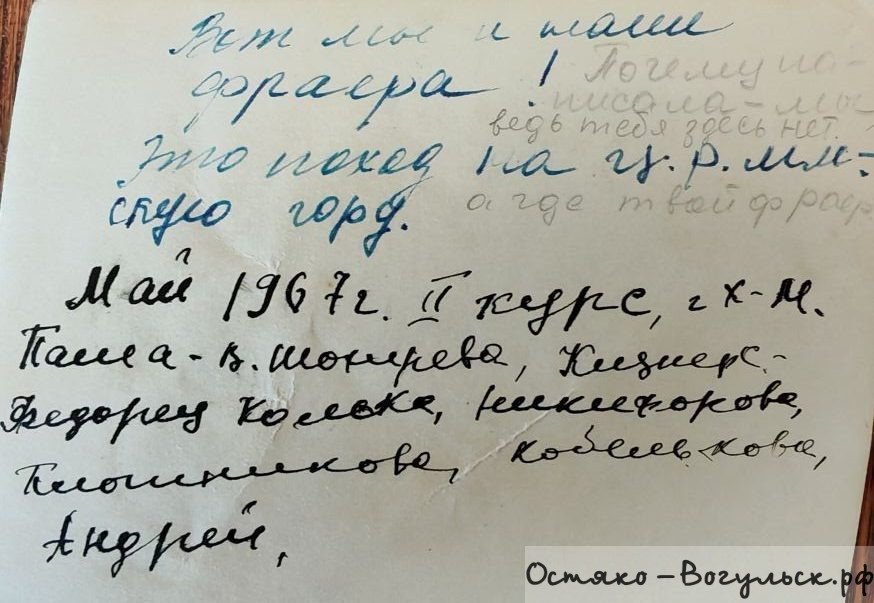 Вот мы и наши
фраера ! Почему на-
писала - мы
ведь тебя здесь нет.
Это поход на
горд. а где твой фраер
Май 1967 г. II курс, г Х-М.
Паша - В.
Федорец Никифорова,
Плотникова, Кобелькова,
Андрей,
Остяко - Вогульск.рф